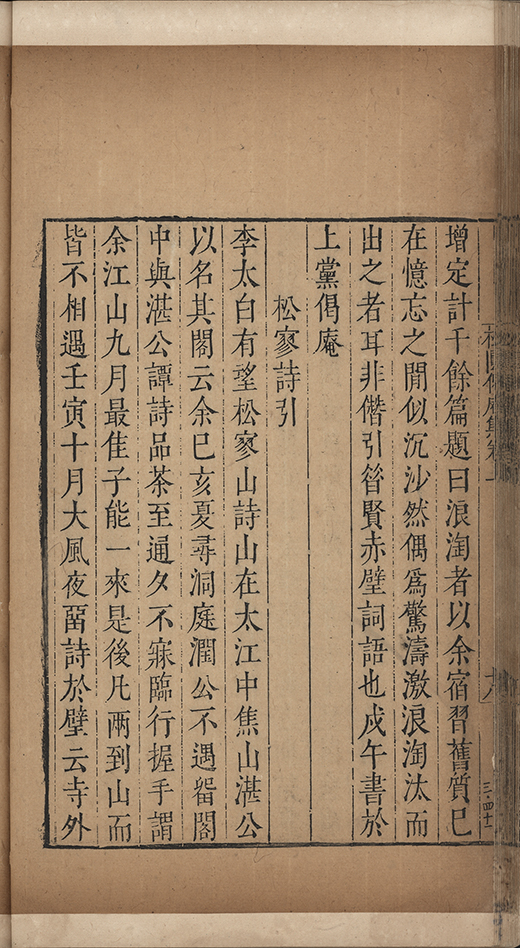 增定計千餘篇題曰浪淘者以余宿習舊質已
在憶忘之閒似沉沙然偶爲驚濤激浪淘汰而
出之者耳非僭引昝賢赤壁詞語也戍午書於
上黨偈庵
松寥詩引
李太白有望松寥山詩山在大江中焦山湛公
以名其閣云余巳亥夏尋洞庭潤公不遇畱閣
中與湛公譚詩品茶至通夕不寐臨行握手謂
余江山九月最佳子能一來是後凡兩到山而
皆不相遇壬寅十月大風夜畱詩於壁云寺外
十八